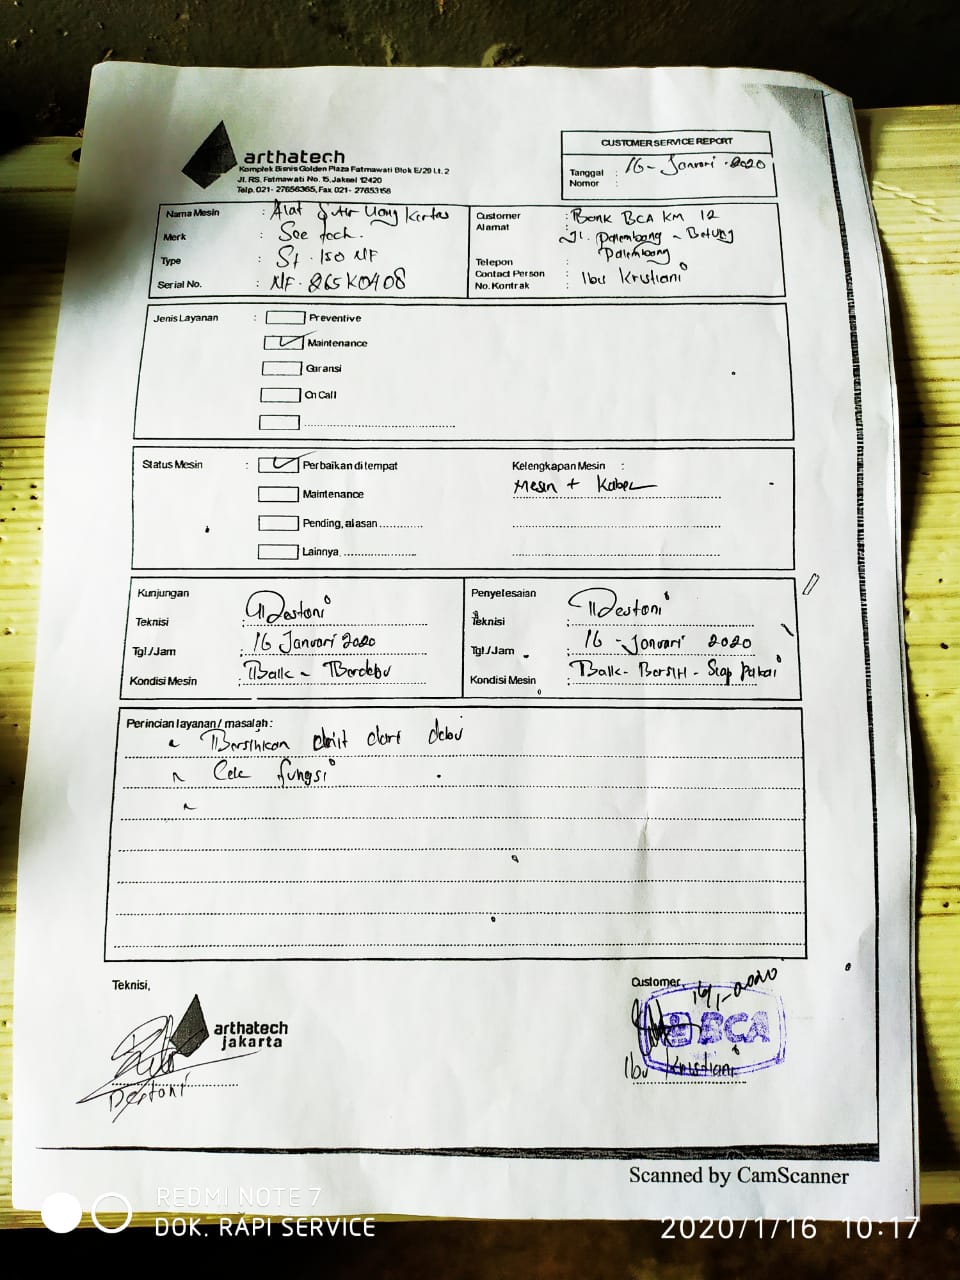 arthatech
Komplek Bisnis Golden Plaza Fatmawati Blok E/29 Lt. 2
Jl. RS. Fatmawati No. 15, Jaksel 12420
Telp. 021- 27656365, Fax 021- 27653156
CUSTOMER SERVICE REPORT
Tanggal : 16 - Januari - 2020
Nomor :
Nama Mesin : Alat Sortir Uang Kertas
Merk : See tech.
Type : ST. 150 NF
Serial No. : NF. 865K0408
Customer : Bank BCA KM 12
Alamat : Jl. Palembang - Betung
Palembang
Telepon :
Contact Person : Ibu Kristiani
No. Kontrak :
Jenis Layanan : Preventive
Maintenance
Garansi
On Call
Status Mesin : Perbaikan di tempat
Maintenance
Pending, alasan
Lainnya
Kelengkapan Mesin :
Mesin + Kabel
Kunjungan
Teknisi : Destoni
Tgl./Jam : 16 Januari 2020
Kondisi Mesin : Baik - Berdebu
Penyelesaian
Teknisi : Destoni
Tgl./Jam : 16 - Januari 2020
Kondisi Mesin : Baik - Bersih - Siap pakai
Perincian layanan / masalah :
Bersihkan dari debu
Cek fungsi
Teknisi,
arthatech
jakarta
Destoni
Customer,
16/1-2020
BCA
Ibu Kristiani
Scanned by CamScanner
REDMI NOTE 7
DOK. RAPI SERVICE
2020/1/16 10:17